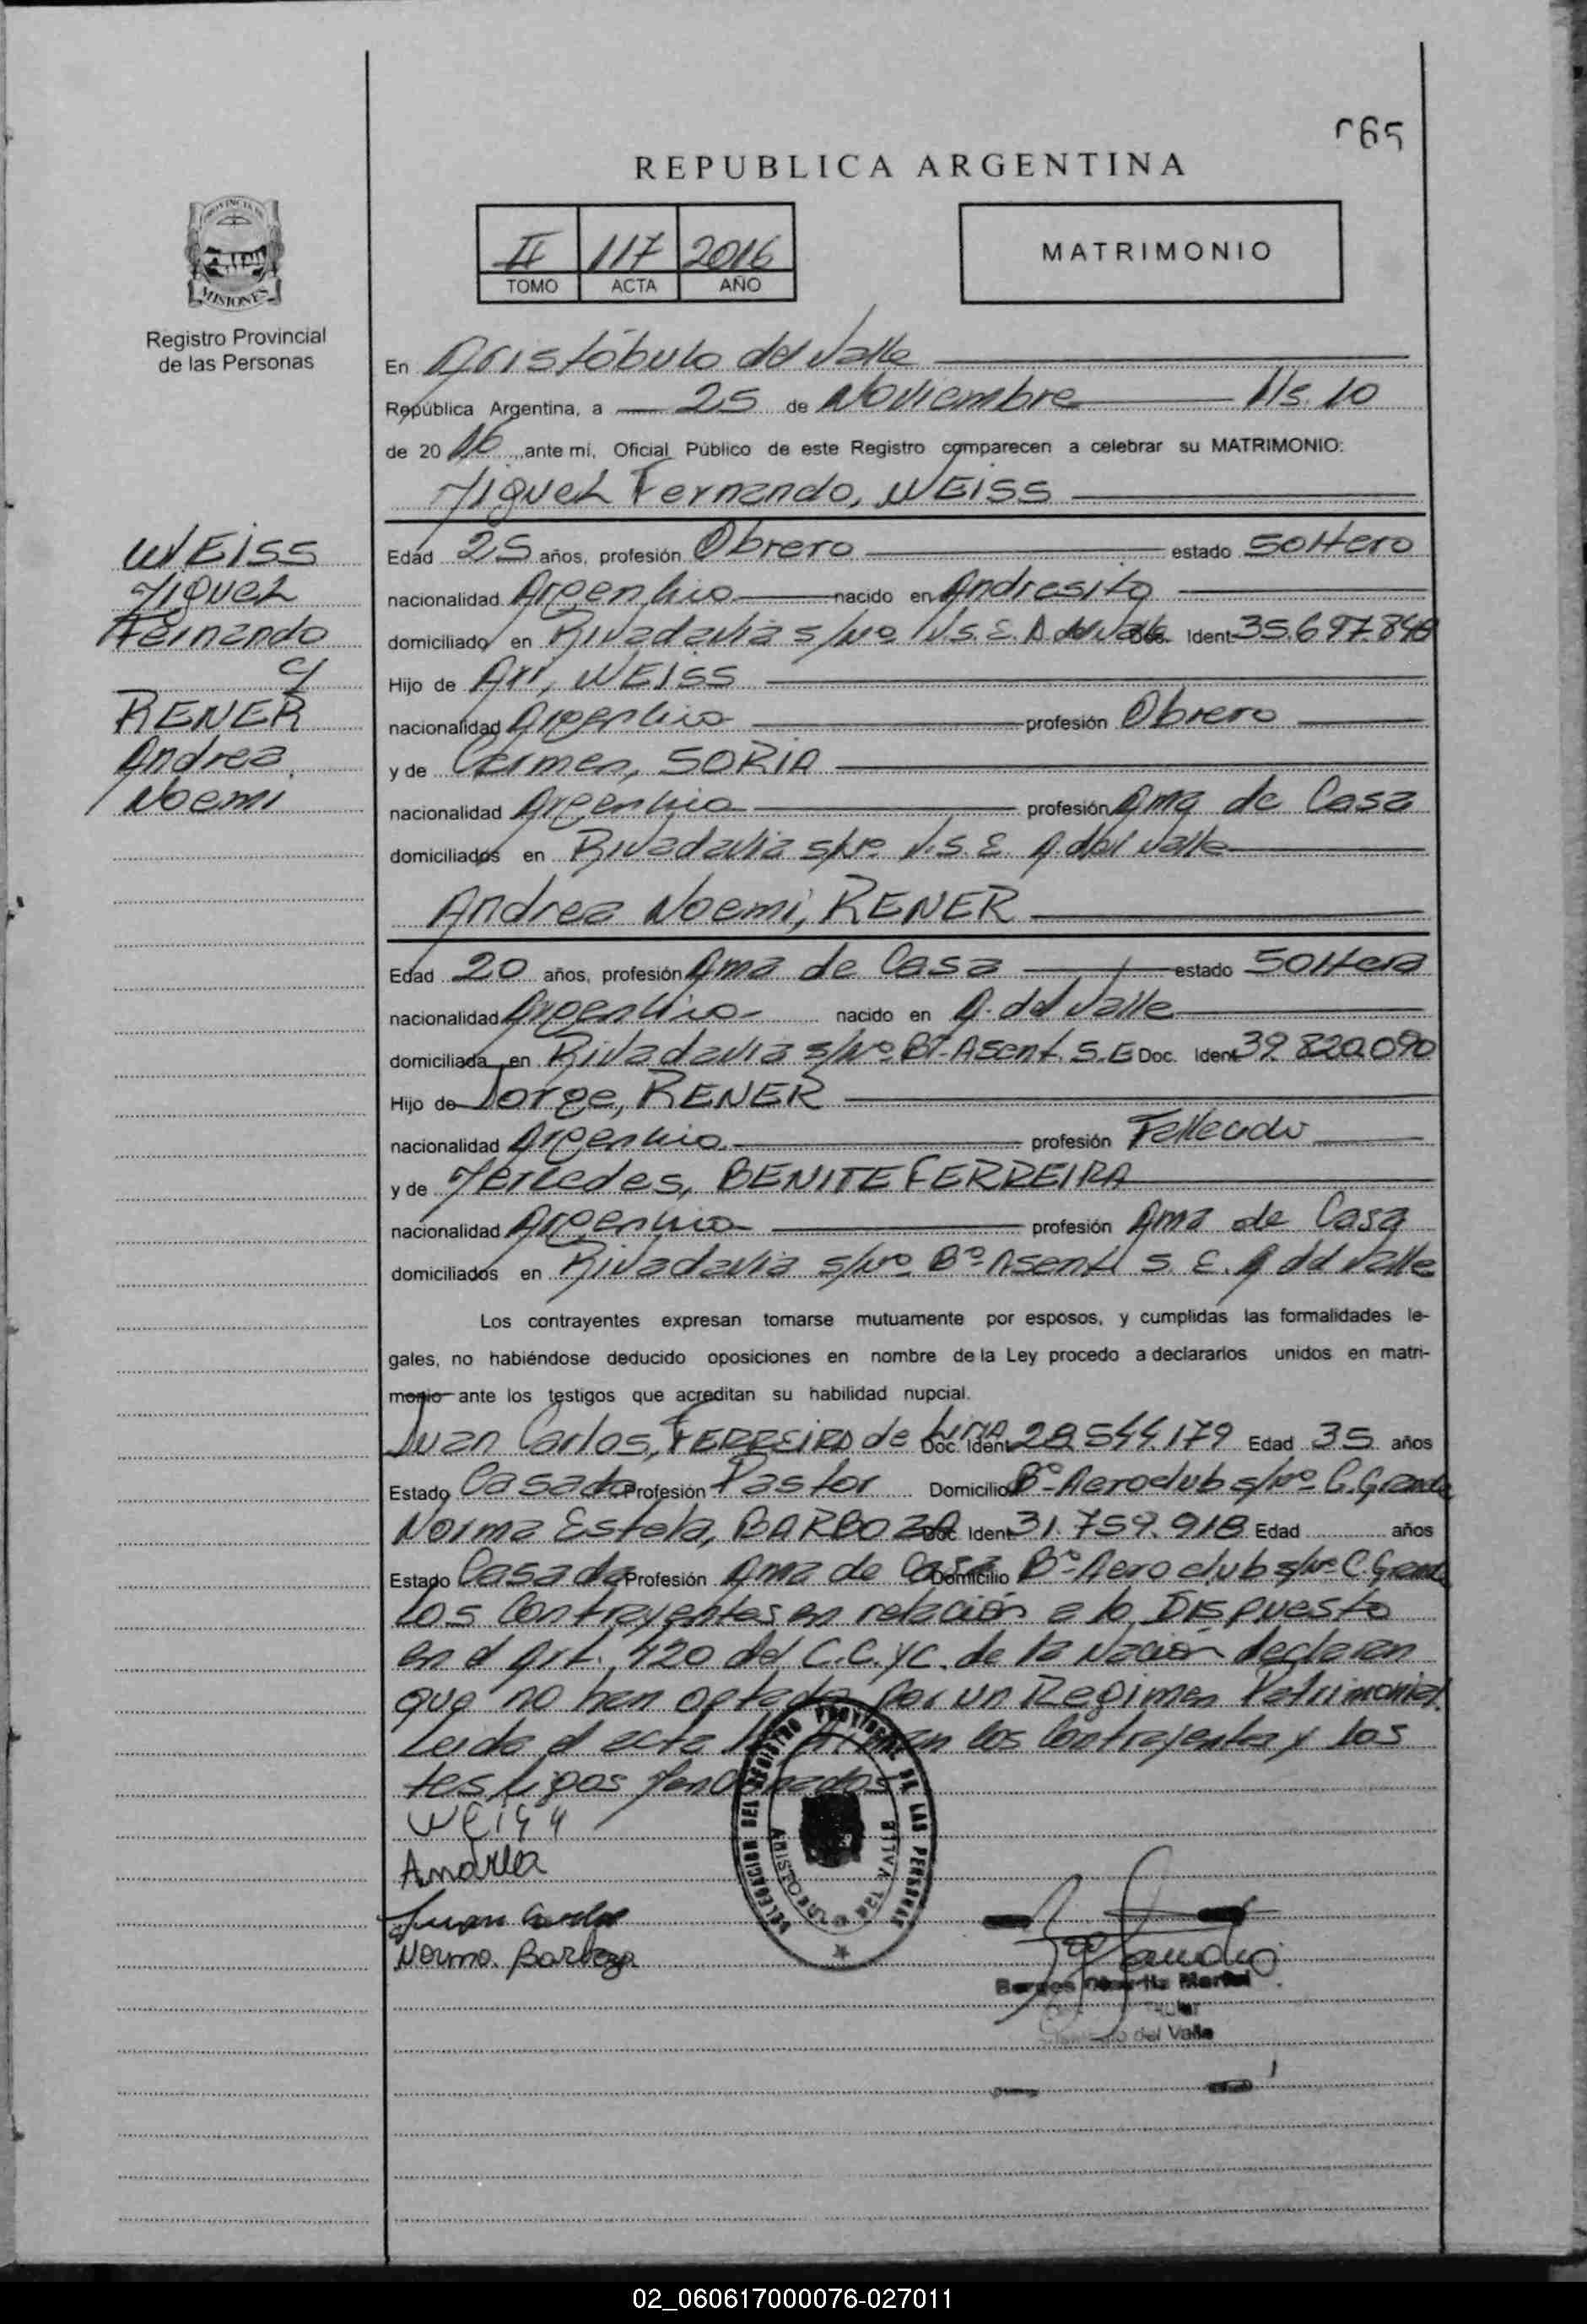 065
REPUBLICA ARGENTINA
PROVINCIA DE
MISIONES
Registro Provincial
de las Personas
II 117 2016
TOMO ACTA AÑO
MATRIMONIO
En Aristóbulo del Valle
República Argentina, a 25 de Noviembre Hs. 10
de 20 16 ante mi, Oficial Público de este Registro comparecen a celebrar su MATRIMONIO:
Miguel Fernando, WEISS
WEISS
Miguel
Fernando
c/
RENER
Andrea
Noemi
Edad 25 años, profesión Obrero estado Soltero
nacionalidad Argentino nacido en Andresito
domiciliado en Rivadavia s/Nº V.S.E. A. del Valle Doc. Ident 35.697.840
Hijo de WEISS
nacionalidad Argentino profesión Obrero
y de Carmen, SORIA
nacionalidad Argentina profesión Ama de Casa
domiciliados en Rivadavia s/Nº V.S.E. A. del Valle
Andrea Noemi, RENER
Edad 20 años, profesión Ama de Casa estado Soltera
nacionalidad Argentina nacido en A. del Valle
domiciliada en Rivadavia s/Nº Bº Asent. S.E Doc. Ident 39.820.090
Hijo de Jorge, RENER
nacionalidad Argentino profesión Fallecido
y de Mercedes, BENITE FERREIRA
nacionalidad Argentina profesión Ama de Casa
domiciliados en Rivadavia s/Nº Bº Asent S. E. A. del Valle
Los contrayentes expresan tomarse mutuamente por esposos, y cumplidas las formalidades le-
gales, no habiéndose deducido oposiciones en nombre de la Ley procedo a declararlos unidos en matri-
monio ante los testigos que acreditan su habilidad nupcial.
Juan Carlos, FERREIRA de LIMA Doc. Ident 28.544.179 Edad 35 años
Estado Casado Profesión Pastor Domicilio Bº Aeroclub s/Nº C. Grande
Norma Estela, BARBOZA Doc. Ident 31.759.918 Edad años
Estado Casada Profesión Ama de Casa Domicilio Bº Aero club s/Nº C. Grande
Los Contrayentes en relación a lo Dispuesto
en el Art. 420 del C.C.yC. de la Nación declaran
que no han optado por un Regimen Patrimonial.
Leida el acta la firman los Contrayentes y los
testigos Mencionados
DELEGACION DEL REGISTRO PROVINCIAL DE LAS PERSONAS
ARISTOBULO DEL VALLE
Weiss
Andrea
Juan Carlos
Norma Barboza
del Valle
02_060617000076-027011